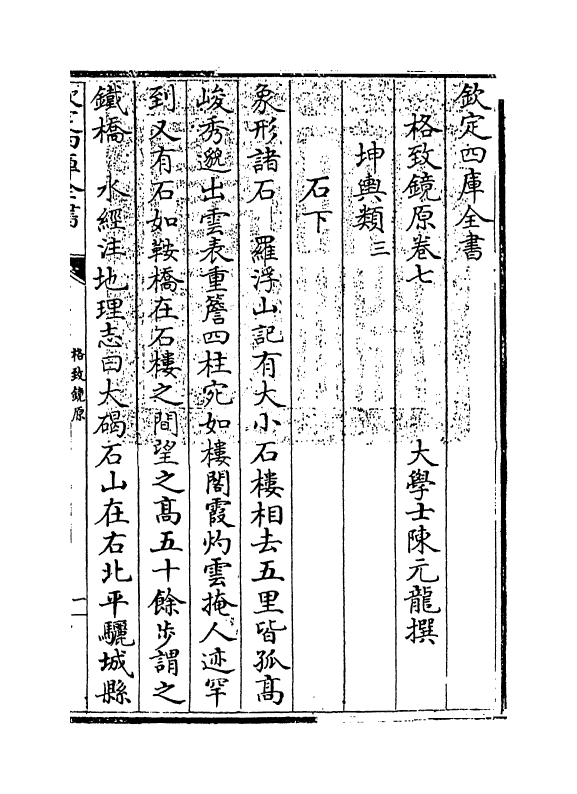 欽定四庫全書
格致鏡原卷七　大學士陳元龍撰
坤輿類三
石下
象形諸石　羅浮山記有大小石樓相去五里皆孤高
峻秀邈出雲表重簷四柱宛如樓閣霞灼雲掩人迹罕
到又有石如鞍橋在石樓之間望之髙五十餘步謂之
鐵橋　水經注地理志曰大碣石山在右北平驪城縣
欽定四庫全書
格致鏡原
一